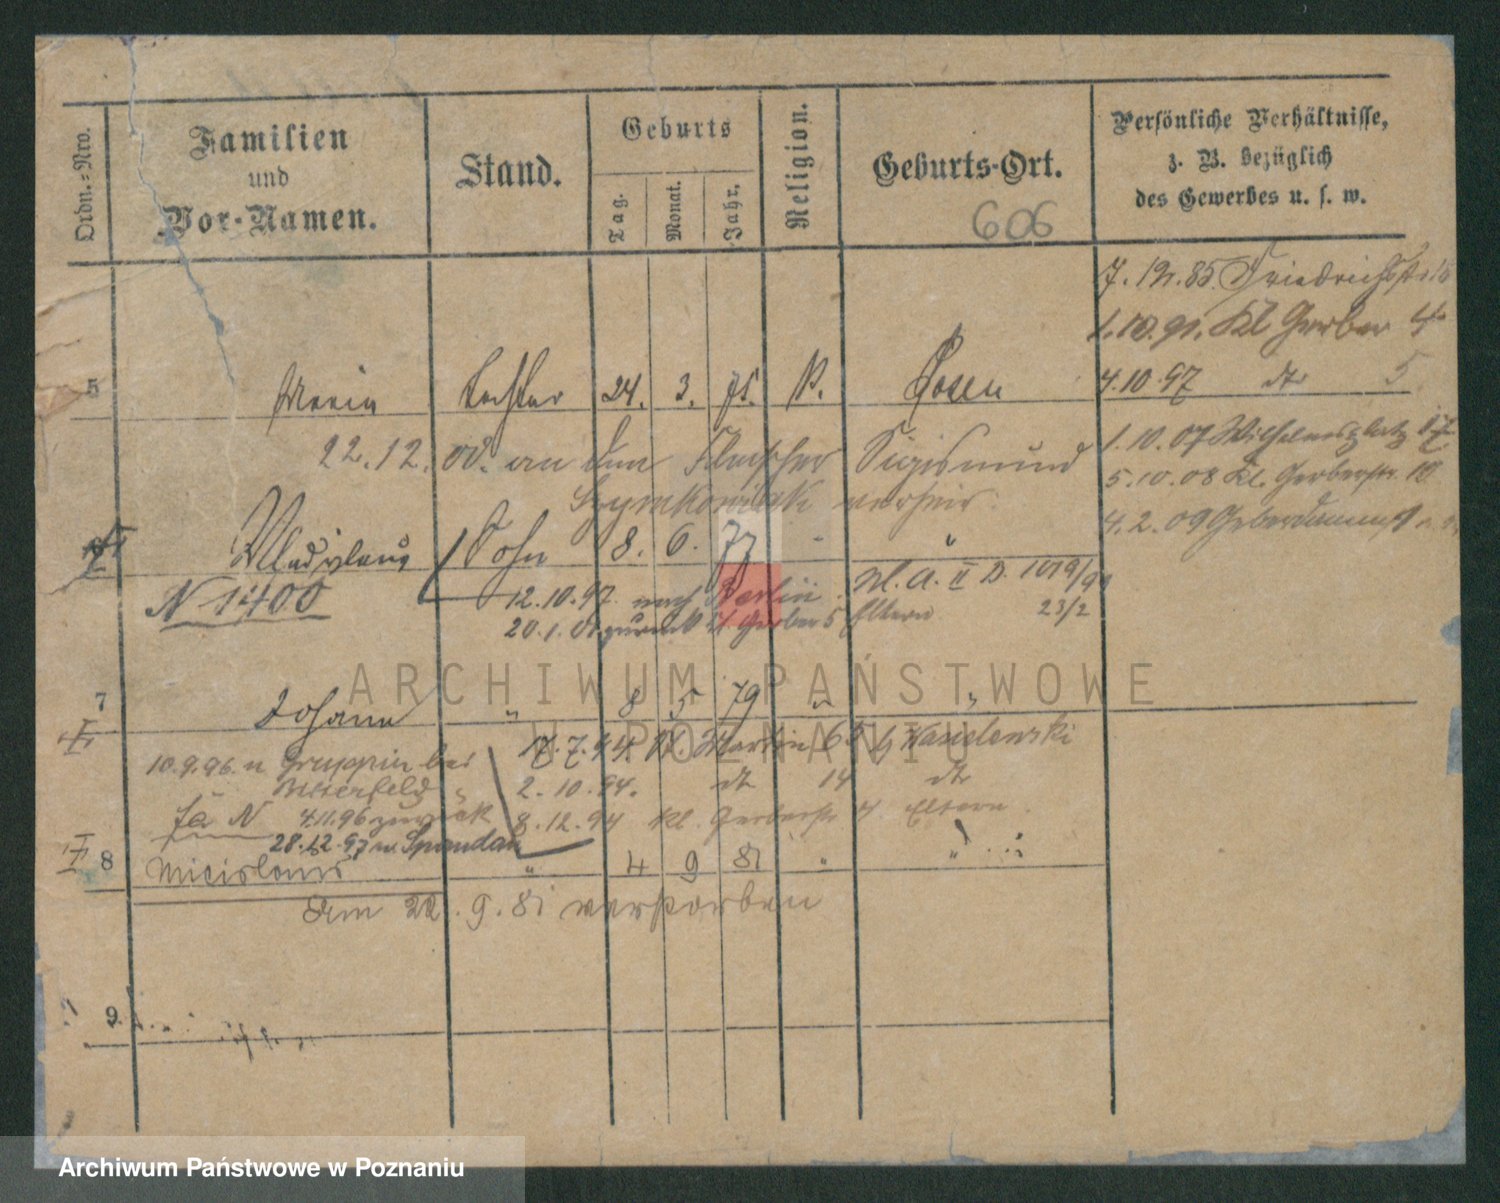 Ordn.-Nro.
Familien
und
Vor-Namen.
Stand.
Geburts
Tag.
Monat.
Jahr.
Religion.
Geburts-Ort.
606
Persönliche Verhältnisse,
z. B. bezüglich
des Gewerbes u. s. w.
7. 12. 85. Friedrichstr. 15
1. 10. 91. Kl Gerber 4
4. 10 97 dto 5
1. 10. 07 Wilhelmsplatz 17
5. 10. 08 Kl. Gerberstr. 10
4. 2. 09
5 Maria Tochter 24. 3. 75. K. Posen
22. 12. an den Fleischer Sigismund
Szymkowiak verheir.
Wladislaus Sohn 8. 6. 77 "
N 1400
12. 10. 97 nach Berlin. II D. 1019/99
20. 1. zurück Kl. Gerber 5 Eltern 23/2
7 Johann " 8 5 79 " "
17. 7. 94. St. Martin 65 b
10. 9. 96. n Gruppin bei
Bitterfeld
2. 10. 94. dt 14 dto
4.11.96 zurück
8. 12. 94 Kl. Gerberstr 4 Eltern
28. 12. 97 n. Spandau
8 Micislaus " 4 9 81 " "
am 22. 9. 81 verstorben
9.
ARCHIWUM PAŃSTWOWE
W POZNANIU
Archiwum Państwowe w Poznaniu